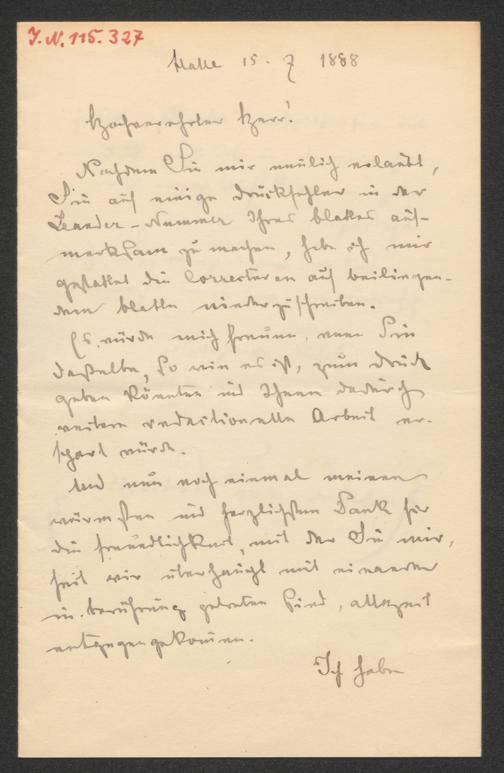 I.N. 115.327
Halle 15. 7 1888
Hochverehrter Herr!
Nachdem Sie mir neulich erlaubt,
Sie auf einige Druckfehler in der
Leander-Nummer Ihres Blattes auf-
merksam zu machen, habe ich mir
gestattet die Correcturen auf beiliegen-
dem Blatte niederzuschreiben.
Es würde mich freuen, wenn Sie
dasselbe, so wie es ist, zum Druck
geben könnten und Ihnen dadurch
weitere redactionelle Arbeit er-
spart würde.
Und nun noch einmal meinen
wärmsten und herzlichsten Dank für
die Freundlichkeit, mit der Sie mir,
seit wir überhaupt mit einander
in Berührung getreten sind, allezeit
entgegengekommen.
Ich habe